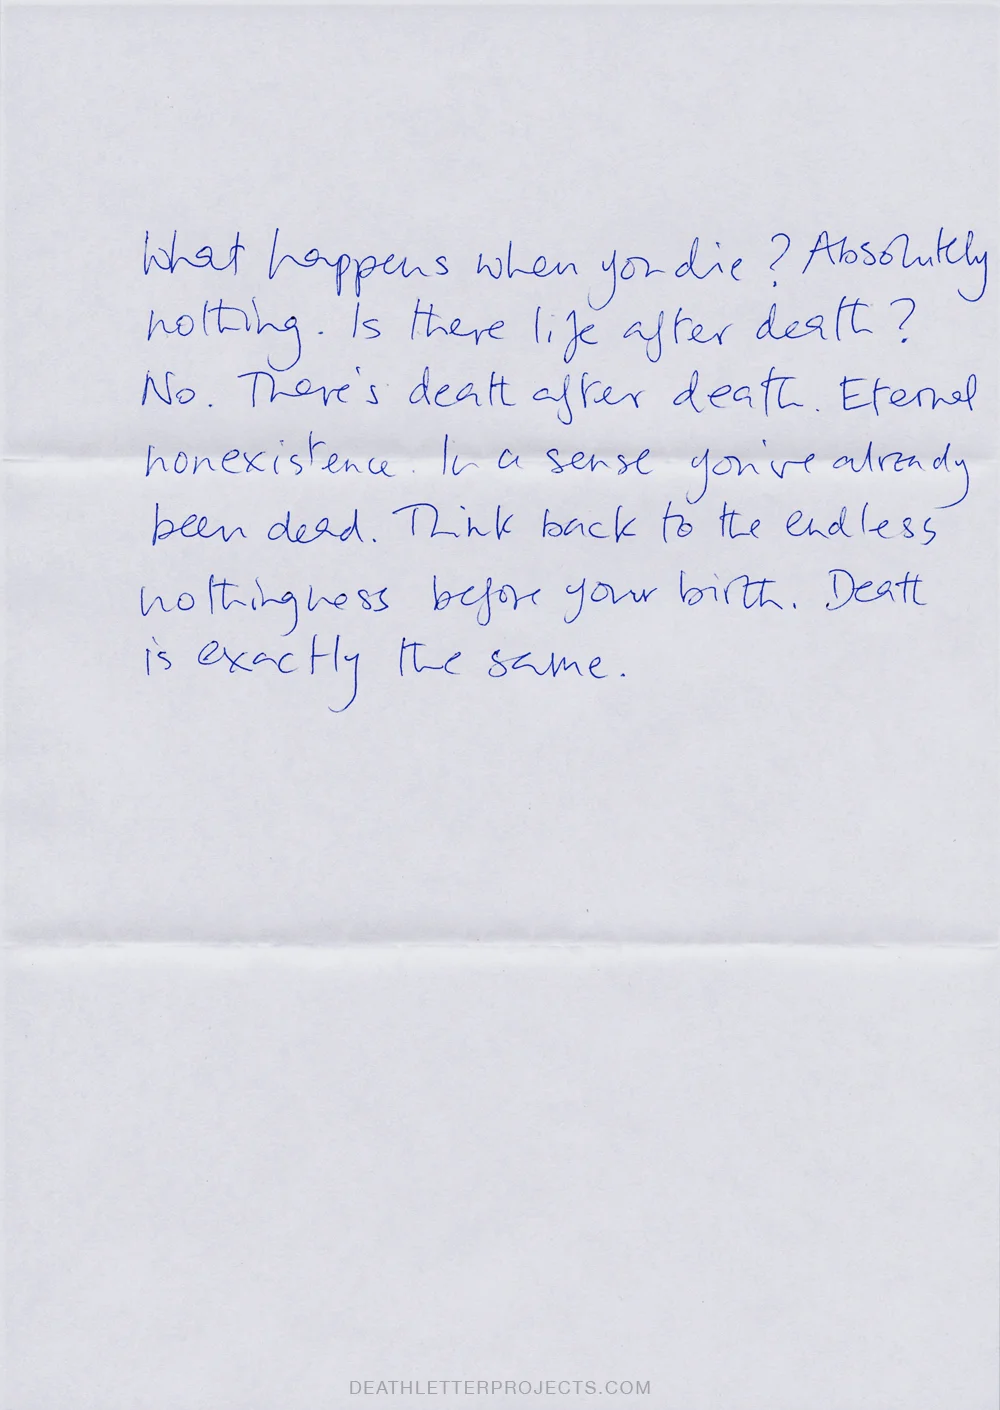 What happens when you die? Absolutely
nothing. Is there life after death?
No. There's death after death. Eternal
nonexistence. In a sense you've already
been dead. Think back to the endless
nothingness before your birth. Death
is exactly the same.
DEATHLETTERPROJECTS.COM